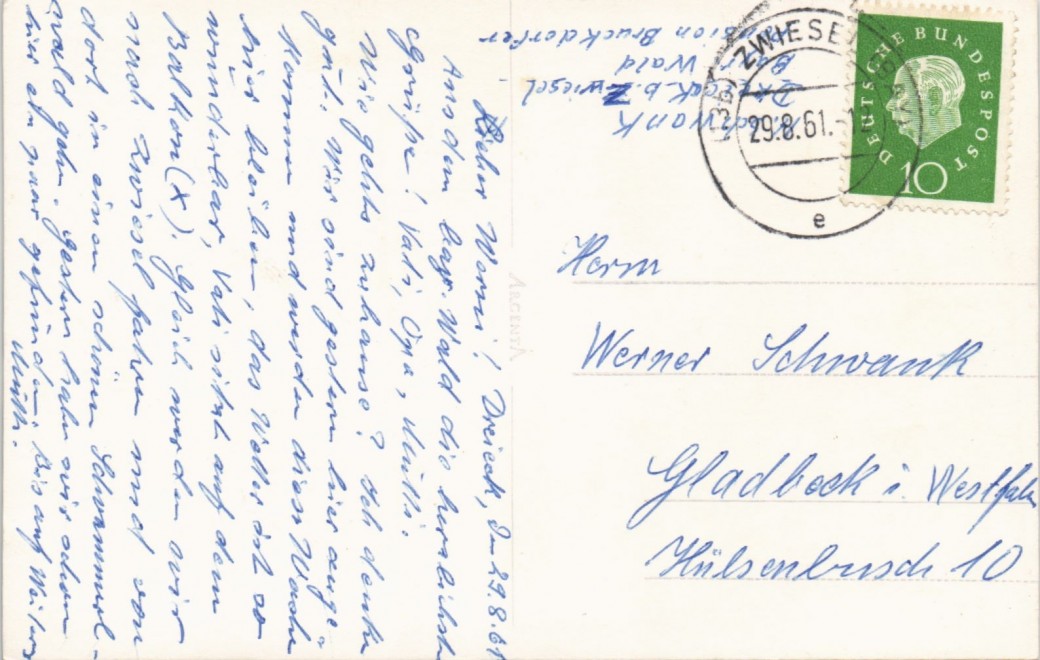 Lieber Werni! Dreieck, den 29.8.61
Aus dem bayr. Wald die herzlichsten
Grüße! Vati, Opa, Mutti.
Wie gehts zuhause? Ich denke
gut. Wir sind gestern hier ange-
kommen und werden diese Woche
hier bleiben, das Wetter ist so
wunderbar, Vati sitzt auf dem
Balkon (X). Gleich werden wir
nach Zwiesel fahren und von
dort in einen schönen Schwammerl-
wald gehn. Gestern haben wir schon
hier ein paar gefunden. Bis auf Weiteres
Mutti.
Schwank
Dreieck b. Zwiesel
Bayr Wald
Pension Bruckdorfer
ARGENTA
(13b) ZWIESEL
29.8.61.-12
e
DEUTSCHE BUNDESPOST
10
Herrn
Werner Schwank
Gladbeck i. Westfalen
Hülsenbusch 10